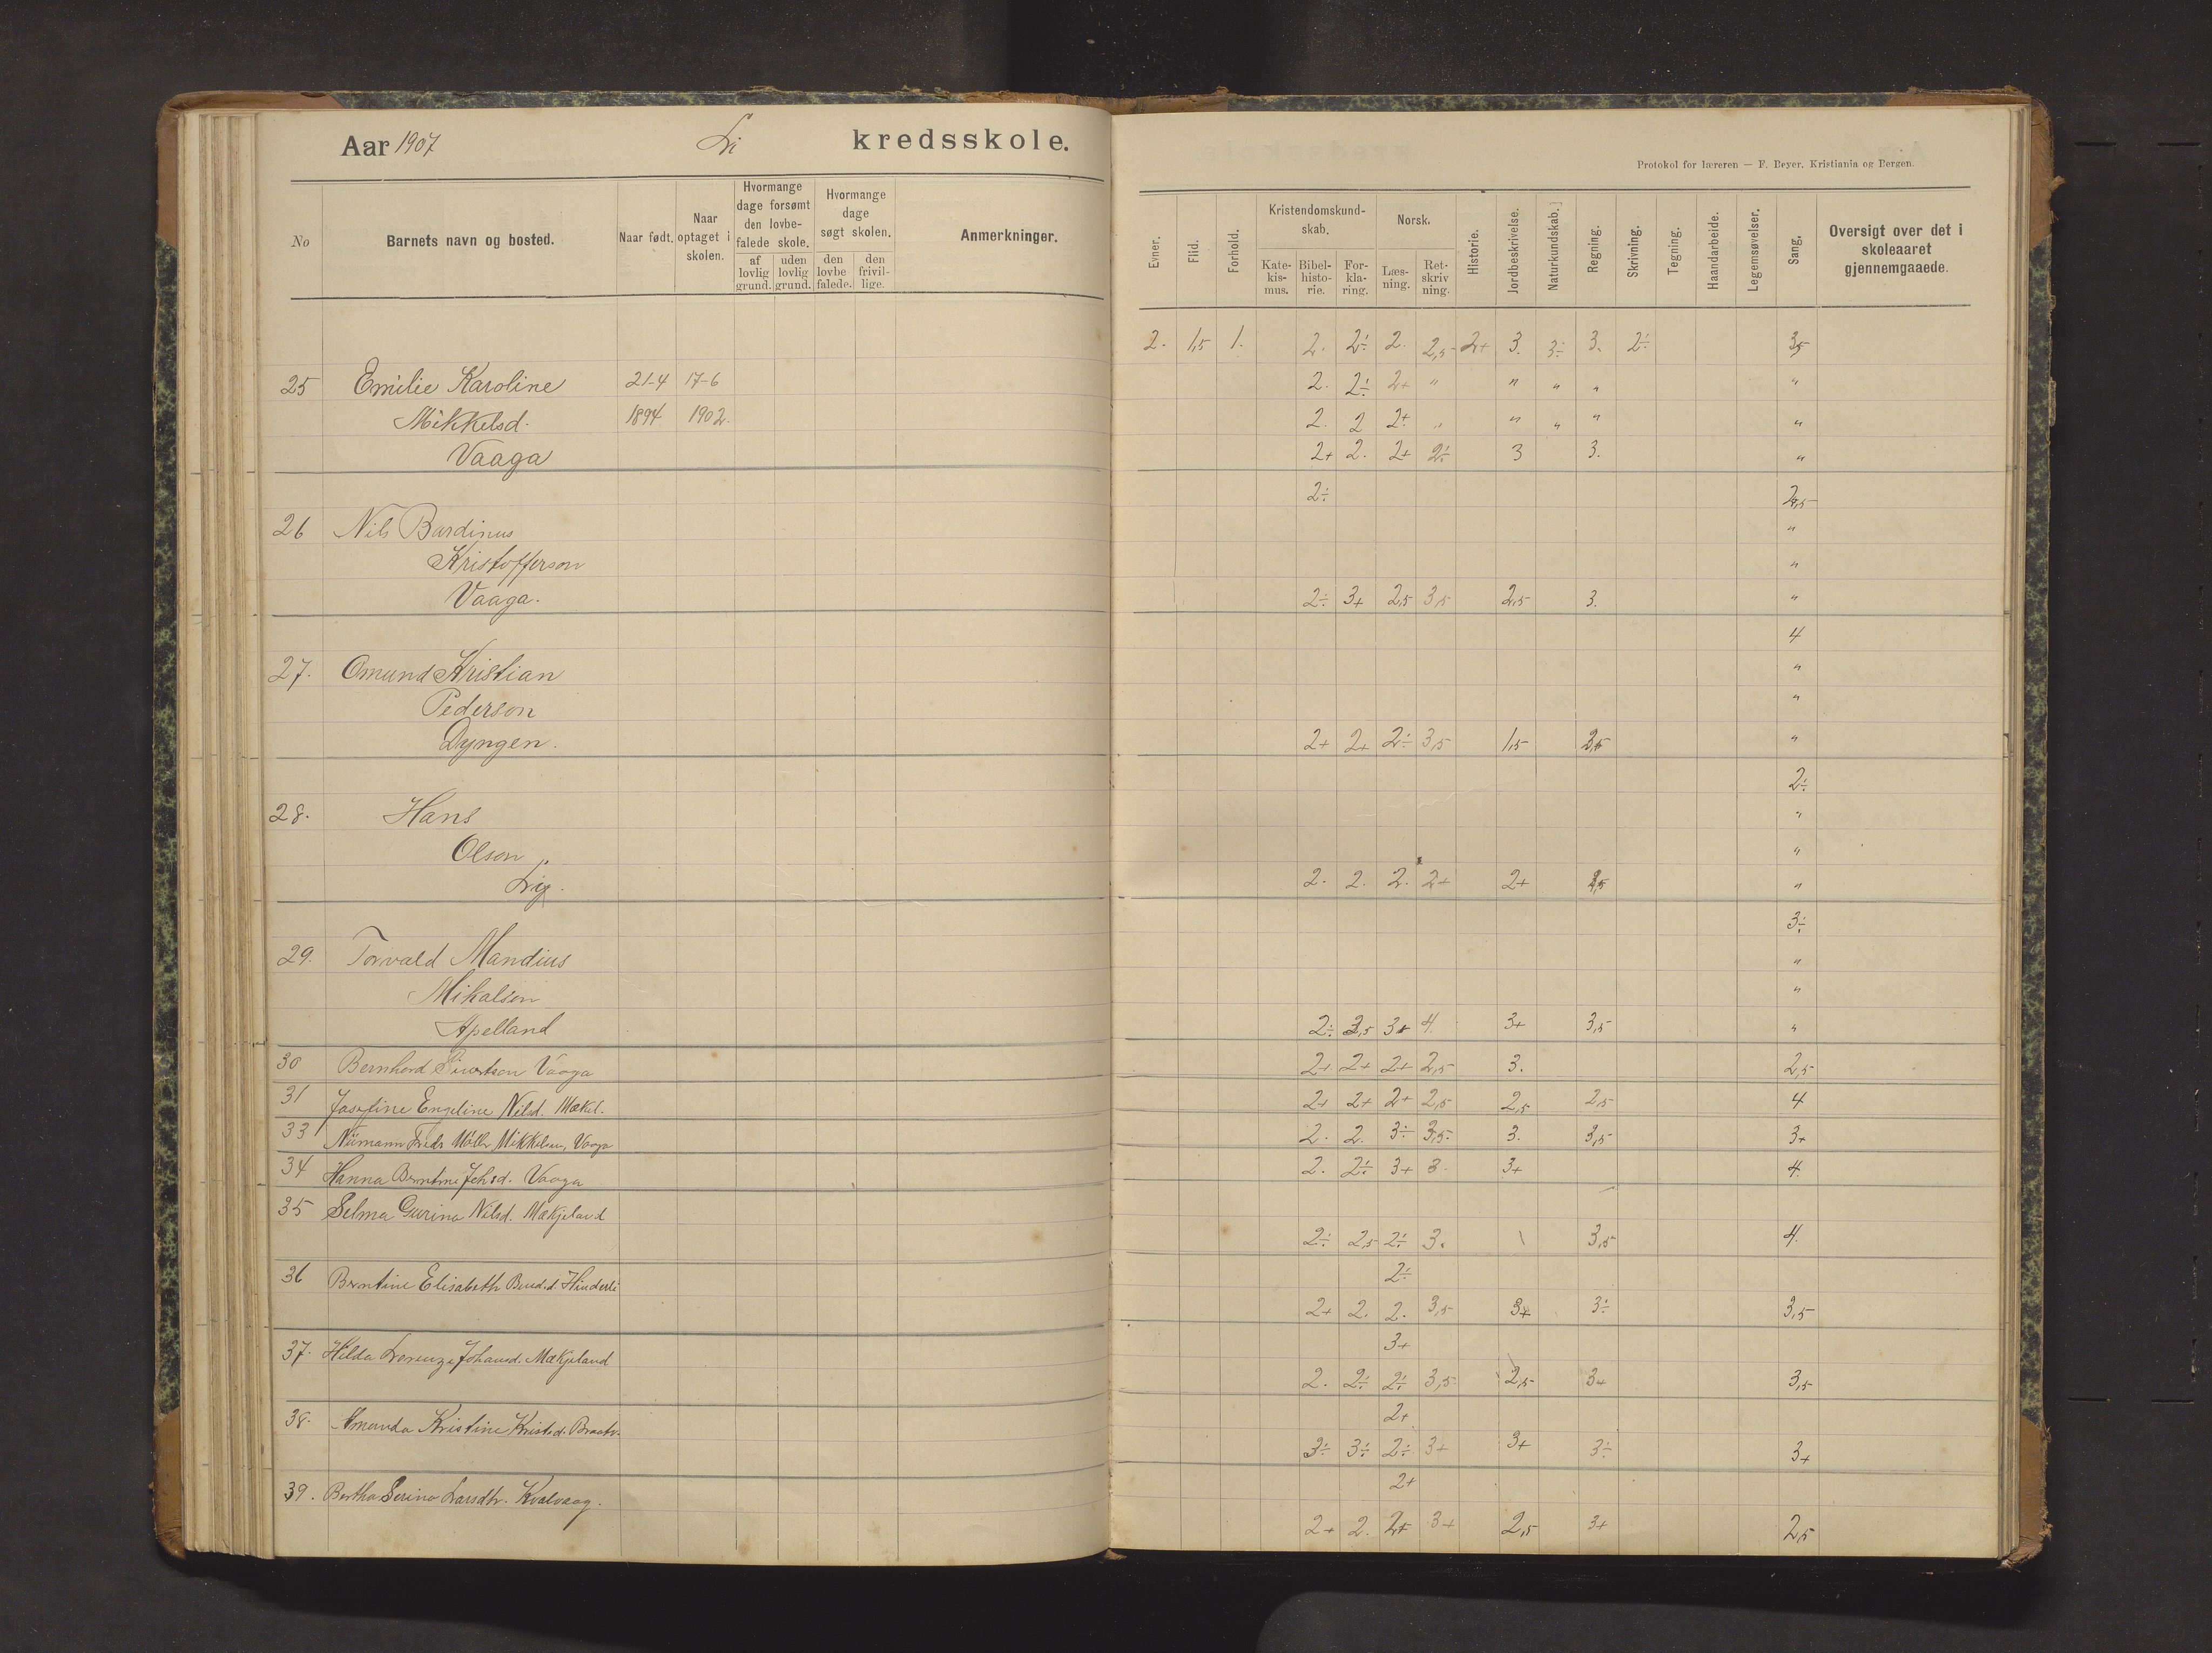 Aar 1907 Li kredsskole.
No
Barnets navn og bosted.
Naar født.
Naar optaget i skolen.
Hvormange dage forsømt den lovbefalede skole.
af lovlig grund.
uden lovlig grund.
Hvormange dage søgt skolen.
den lovbefalede.
den frivillige.
Anmerkninger.
25 Emilie Karoline 21-4 17-6
Mikkelsd. 1894 1902.
Vaaga
26 Nils Bardinus
Kristofferson
Vaaga.
27. Omund Kristian
Pederson
Dyngen.
28. Hans
Olson
29. Torvald Mandius
Mikalson
Apelland
30 Bernhard Sivertson Vaaga
31 Josefine Engeline Nilsd. Mækel.
33 Mikkelsen, Vaaga
34 Hanna Berntine Johsd. Vaaga
35 Selma Gurina Nilsd. Mækjeland
36 Berntine Elisabeth Hinderli
37. Hilda Johansd. Mækjeland
38. Amanda Kristine Kristd.
39. Bertha Serina Larsdtr. Kvalvaag.
Protokol for læreren — F. Beyer. Kristiania og Bergen.
Evner.
Flid.
Forhold.
Kristendomskundskab.
Katekismus.
Bibelhistorie.
Forklaring.
Norsk.
Læsning.
Retskrivning.
Historie.
Jordbeskrivelse.
Naturkundskab.
Regning.
Skrivning.
Tegning.
Haandarbeide.
Legemsøvelser.
Sang.
Oversigt over det i skoleaaret gjennemgaaede.
2. 1,5 1. 2. 2÷ 2. 2,5 2+ 3. 3÷ 3. 2÷ 3,5
2. 2÷ 2+ " " " " "
2. 2 2+ " " " " "
2+ 2. 2+ 2÷ 3 3. "
2÷ 2,5
"
"
2÷ 3+ 2,5 3,5 2,5 3. "
4
"
"
2+ 2+ 2÷ 3,5 1,5 2,5 "
2÷
"
"
2. 2. 2. 2+ 2+ "
3÷
"
"
2÷ 3,5 3+ 4 3+ 3,5 "
2+ 2+ 2+ 2,5 3. 2,5
2+ 2+ 2+ 2,5 2,5 2,5 4
2. 2. 3÷ 3,5 3. 3,5 3+
2. 2÷ 3+ 3 3+ 4
2÷ 2,5 2÷ 3. 3,5 4.
2÷
2+ 2. 2. 3,5 3+ 3÷ 3,5
3+
2. 2÷ 2÷ 3,5 2,5 3+ 3,5
2+
3÷ 3÷ 2÷ 3+ 3+ 3÷ 3+
2+
2+ 2. 2+ 3+ 2,5 3+ 2,5